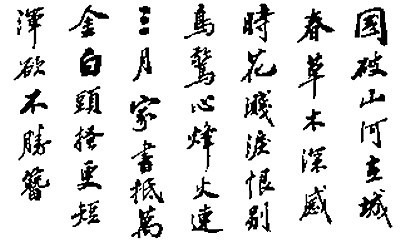 國破山河在城
春草木深感
時花濺淚恨別
鳥驚心烽火連
三月家書抵萬
金白頭搔更短
渾欲不勝簪